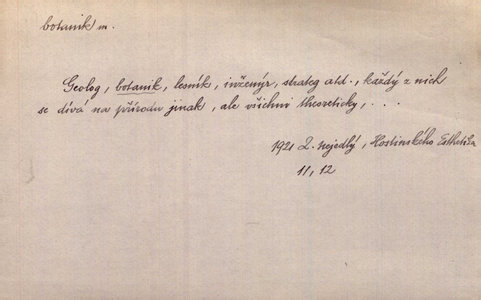 botanik m.
Geolog, botanik, lesník, inženýr, strateg atd., každý z nich
se dívá na přírodu jinak, ale všichni theoreticky, . . .
1921 Z. Nejedlý, Hostinského Esthetika
11, 12